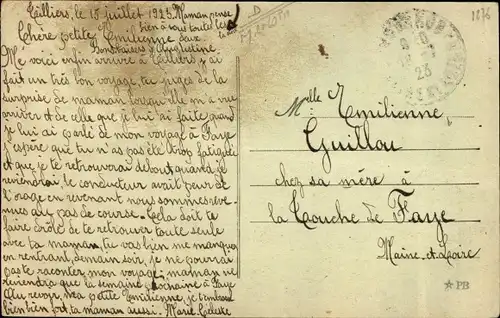 Tilliers, le 15 juillet 1923. Maman pense
bien à vous toutes les
deux
Chère petite Emilienne
Bons baisers d'Augustine
Me voici enfin arrivée à Tilliers, j'ai
fait un très bon voyage, tu juges de la
surprise de maman lorsqu'elle m'a vu
arriver et de celle que je lui ai faite quand
je lui ai parlé de mon voyage à Faye
j'espère que tu n'as pas été trop fatiguée
et que je te retrouverai debout quand je
reviendrai, le conducteur avait peur de
l'orage en revenant nous sommes reve-
nues au pas de course. Cela doit te
faire drôle de te retrouver toute seule
avec ta maman, tu vas bien me manquer
en rentrant, demain soir, je ne pourrai
pas te raconter mon voyage; maman ne
reviendra que la semaine prochaine à Faye
Au revoir, ma petite Emilienne, je t'embrasse
bien bien fort, ta maman aussi. Marie
1876
23
Melle Emilienne
Guillou
chez sa mère à
la Touche de Faye
Maine-et-Loire
★PB